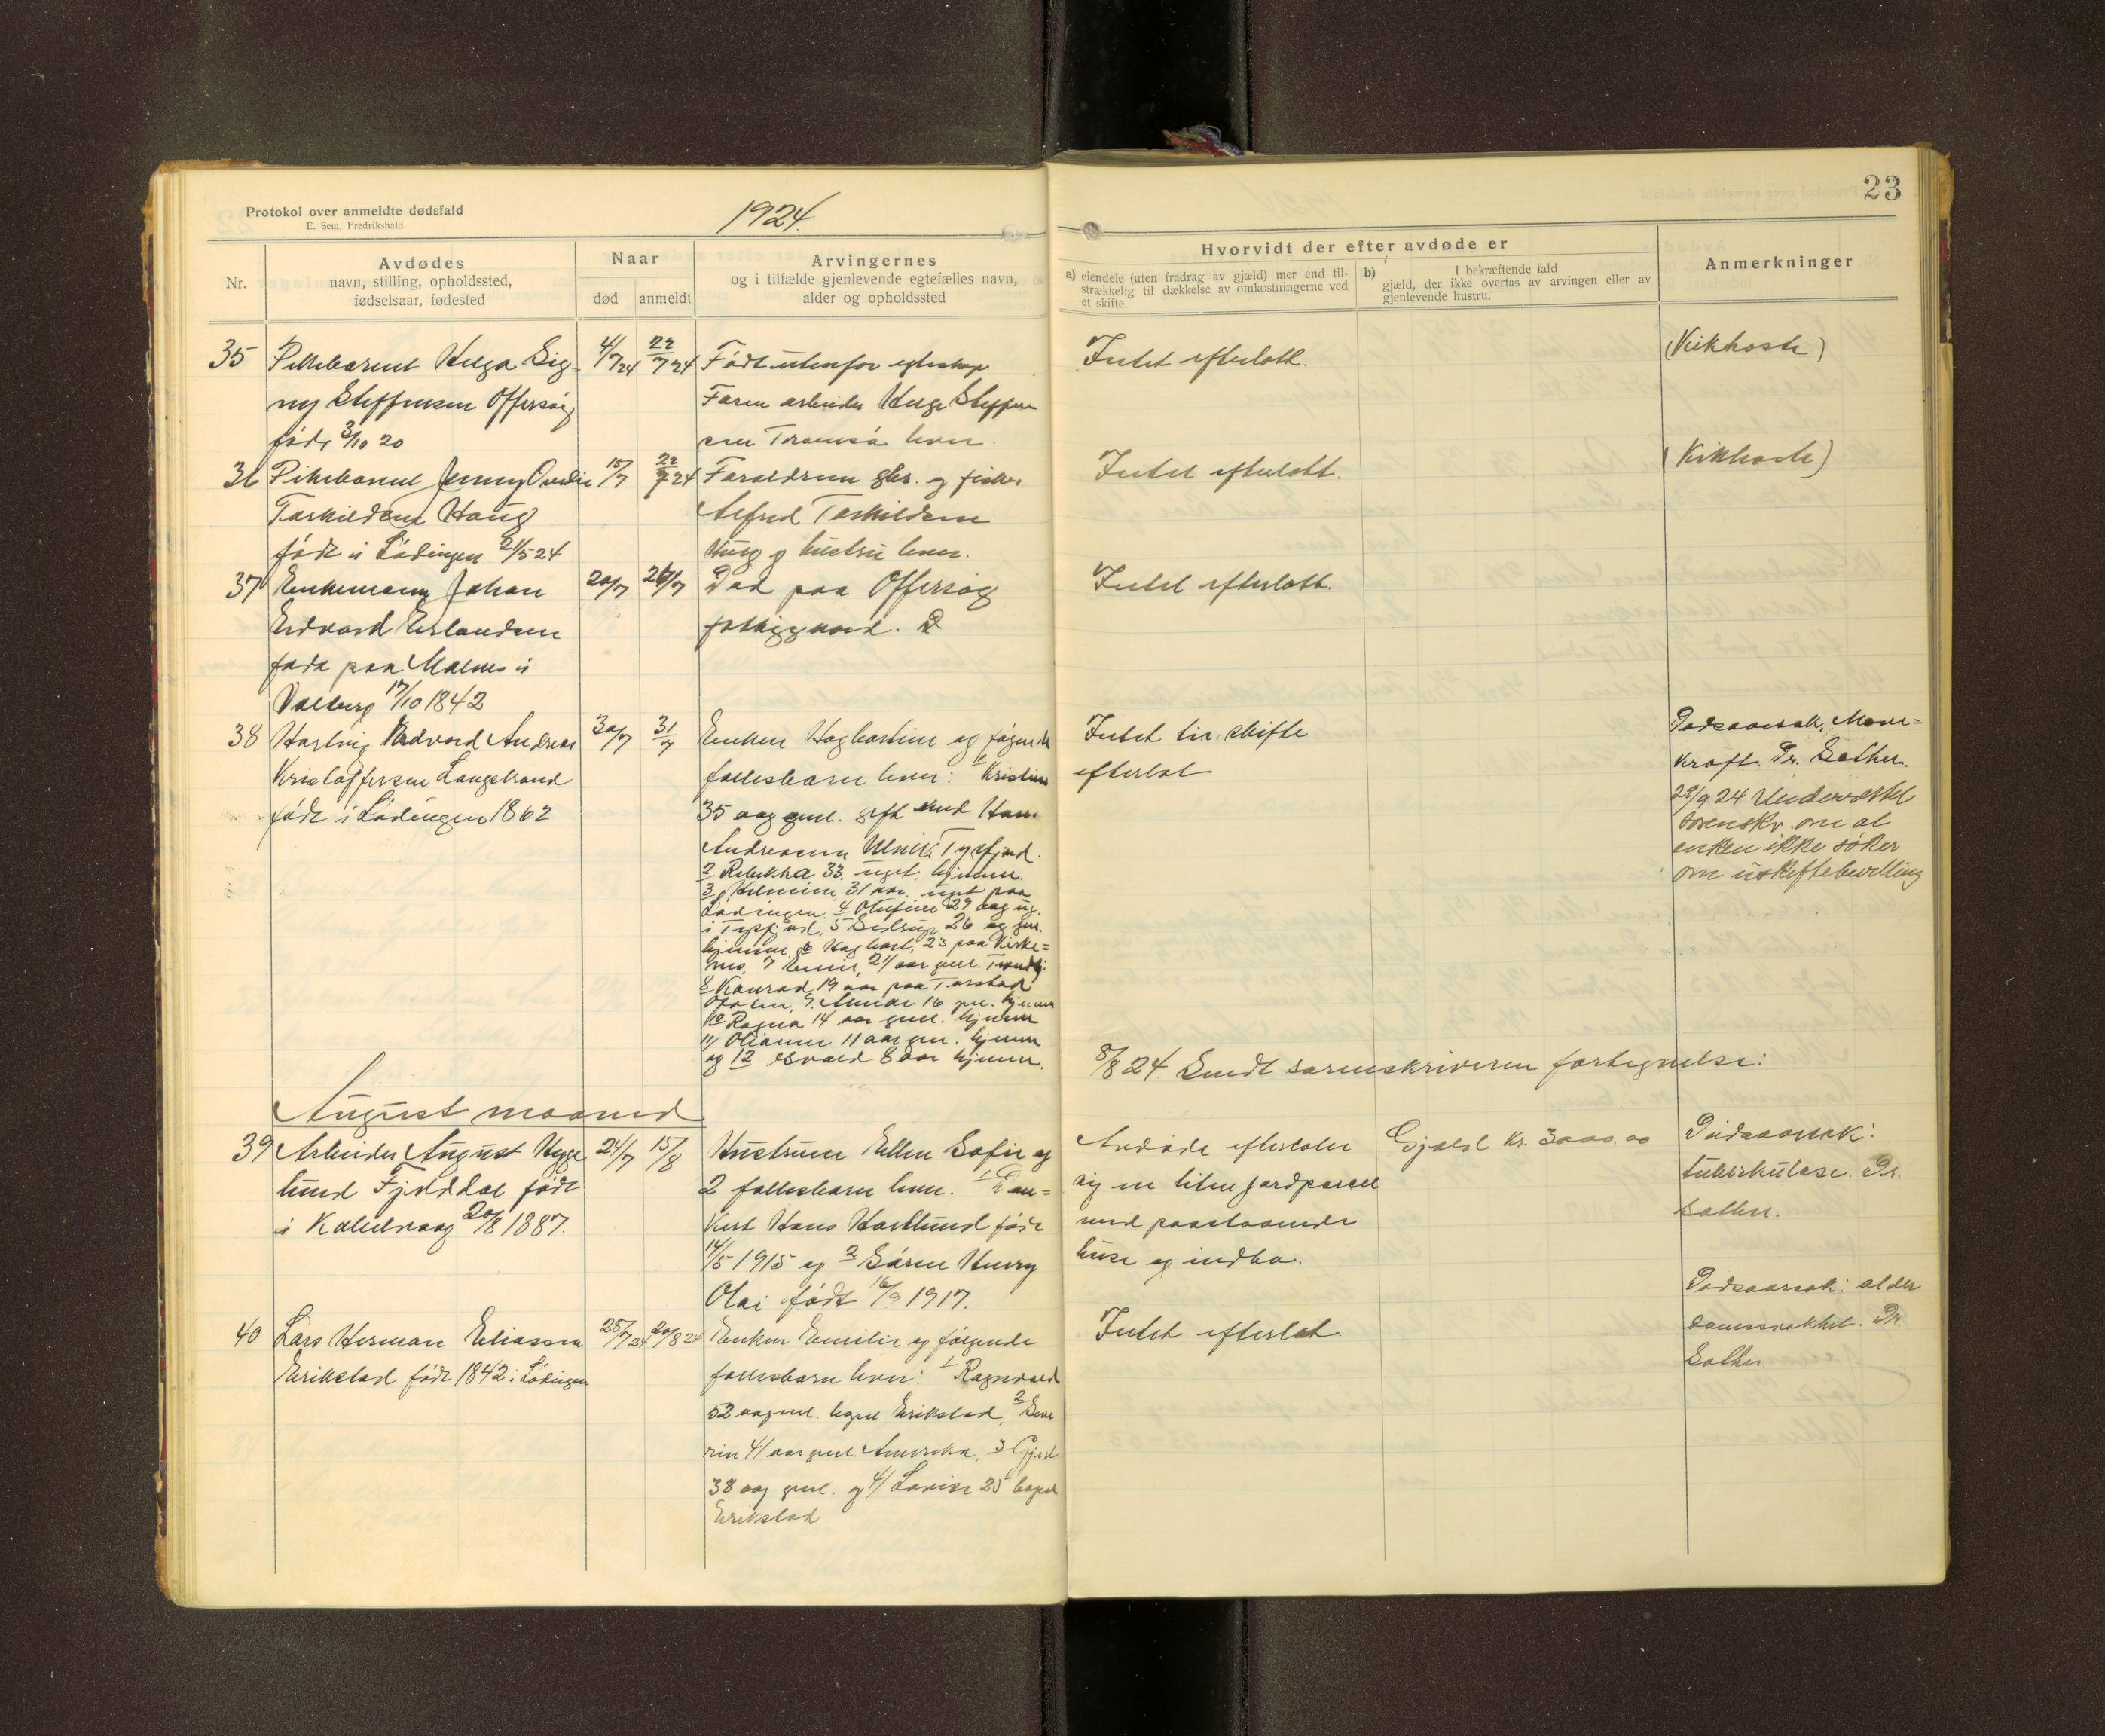 Protokol over anmeldte dødsfald
E. Sem, Fredrikshald
1924.
23
Nr.
Avdødes
navn, stilling, opholdssted,
fødselsaar, fødested
Naar
død
anmeldt
Arvingernes
og i tilfælde gjenlevende egtefælles navn,
alder og opholdssted
Hvorvidt der efter avdøde er
a) eiendele (uten fradrag av gjæld) mer end til-
strækkelig til dækkelse av omkostningerne ved
et skifte.
b) I bekræftende fald
gjæld, der ikke overtas av arvingen eller av
gjenlevende hustru.
Anmerkninger
35
Pikebarnet Helga Sig-
ny Steffensen Offersøy
født 3/10 20
4/7 24
22/7 24
Født utenfor egteskap
Faren arbeider Helge Steffen
sen Tromsø lever.
Intet efterlatt.
(Kikhoste)
36
Pikebarnet Jenny Ovedie
Torkildsen Haug
født i Lødingen 21/5 24
15/7
22/7 24
Forældrene gbr. og fisker
Alfred Torkildsen
Haug og hustru lever.
Intet efterlatt.
(Kikhoste)
37
Enkemann Johan
Edvard Erlandsen
født paa Malnes i
Valberg 17/10 1842
20/7
26/7
Død paa Offersøy
fattiggaard.
Intet efterlatt.
38
Hartvig Edvard Andreas
Kristoffersen Langstrand
født i Lødingen 1862
30/7
31/7
Enken Hagbartine og følgende
fællesbarn lever: 1 Kristine
35 aar gml. gift med Hans
Andreassen Tysfjord.
2 Rebekka 33, ugift, hjemme.
3, 31 aar, ugift paa
Lødingen. 4 29 aar ug.
i Tysfjord, 5 26 aar gml.
hjemme. 6 Hagbart, 23 paa Kirke=
nes, 7 Emil, 21 aar gml.
8 Konrad 19 aar paa
9. 16 gml. hjemme
10 Ragna 14 aar gml. hjemme
11/ 11 aar gml. hjemme
og 12 8 aar hjemme.
Intet til skifte
efterlat
Dødsaarsak: Mave=
kræft. Dr. Sæther.
23/9 24 Underrettet
sorenskr. om at
enken ikke søker
om uskiftebevilling
8/8 24. Sendt sorenskriveren fortegnelse:
August maaned
39
Arbeider August Hygge
lund Fjelddal født
i Kabelvaag 20/8 1887.
24/7
15/8
Hustruen Ellen Sofie og
2 fællesbarn lever. 1
Hans født
14/5 1915 og 2 Søren Henry
Olai født 16/9 1917.
Avdøde efterlater
sig en liten jordparcel
med paastaaende
huse og indbo.
Gjæld kr. 3000.00
Dødsaarsak:
tuberkulose. Dr.
Sæther.
40
Lars Herman Eliassen
Erikstad født 1842 i Lødingen
25/7 24
20/8 24
Enken Emilie og følgende
fællesbarn lever: 1 Ragnvald
52 aar gml. bopæl Erikstad, 2 Seve
rin 41 aar gml. Amerika, 3
38 aar gml. og 4/ Lovise 25 bopæl
Erikstad
Intet efterlat.
Dødsaarsak: alder
domssvakhet. Dr.
Sæther